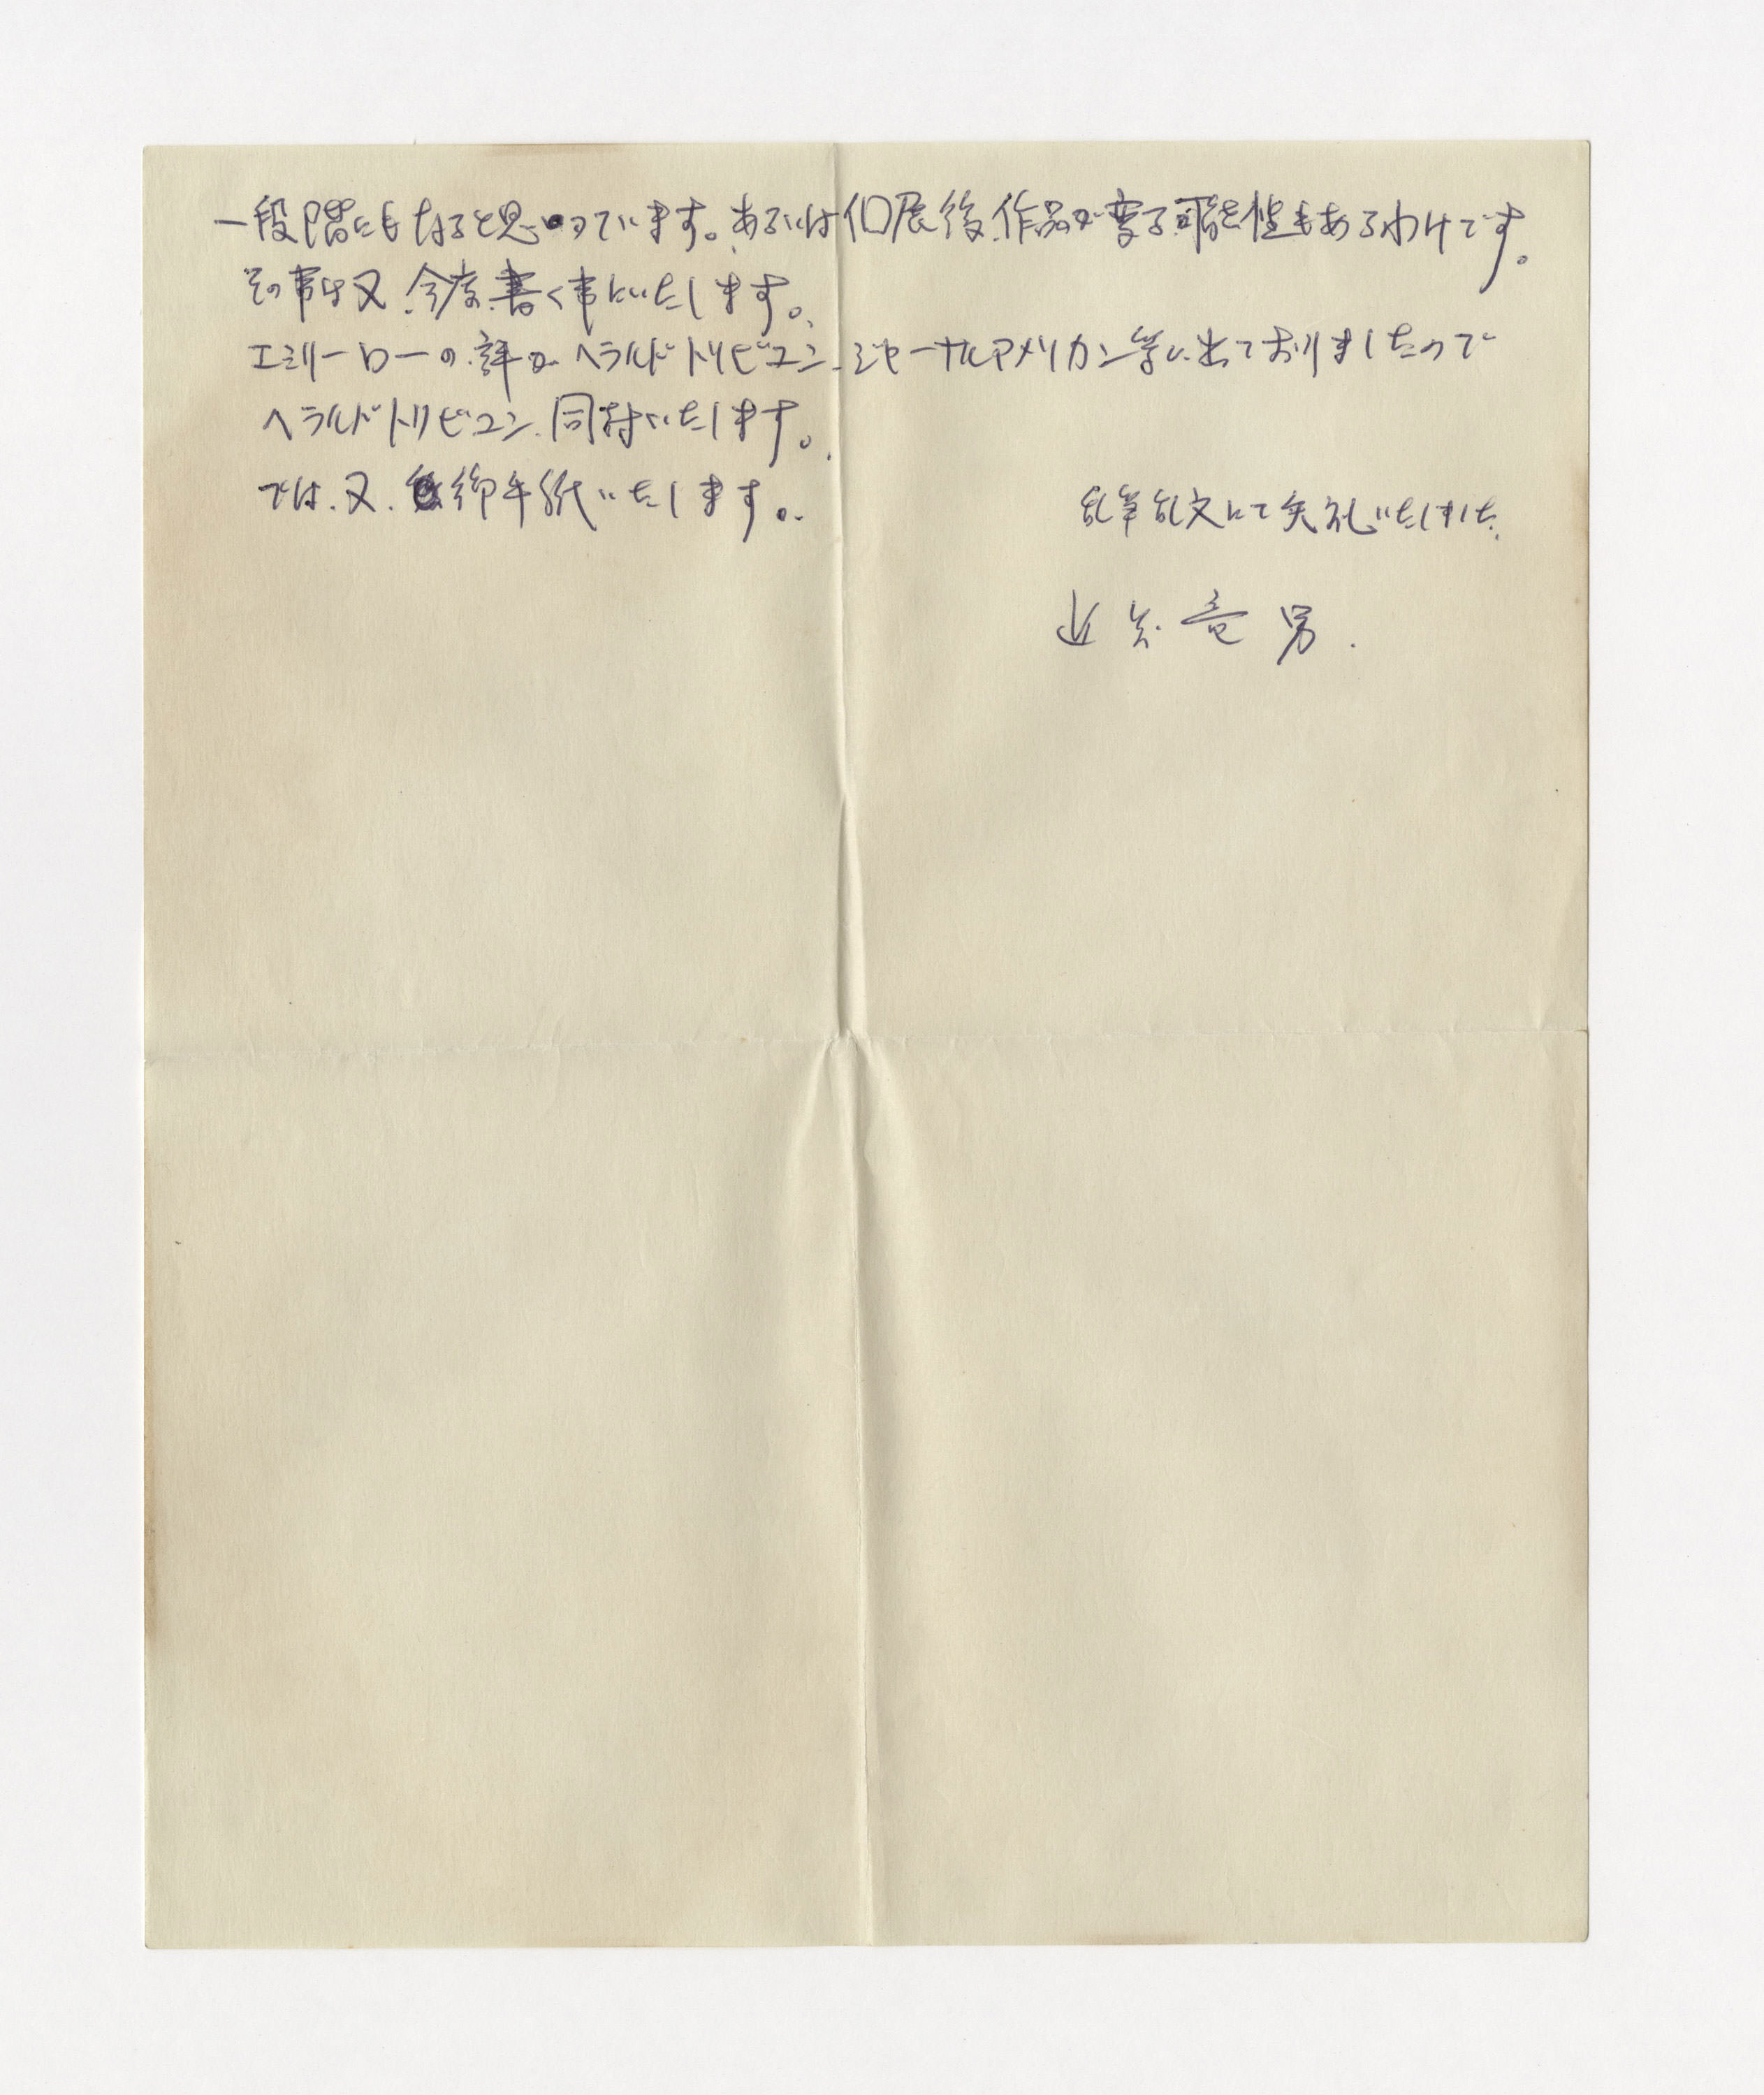 一段階にもなると思っています。あるいは個展後、作品が変る可能性もあるわけです。
その事は又、今度書く事にいたします。
エミリーローの評が、ヘラルドトリビュン、ジャーナルアメリカン等に出ておりましたので
ヘラルドトリビュン、同封いたします。
では、又、御手紙いたします。
乱筆乱文にて失礼いたしました。
近藤竜男.